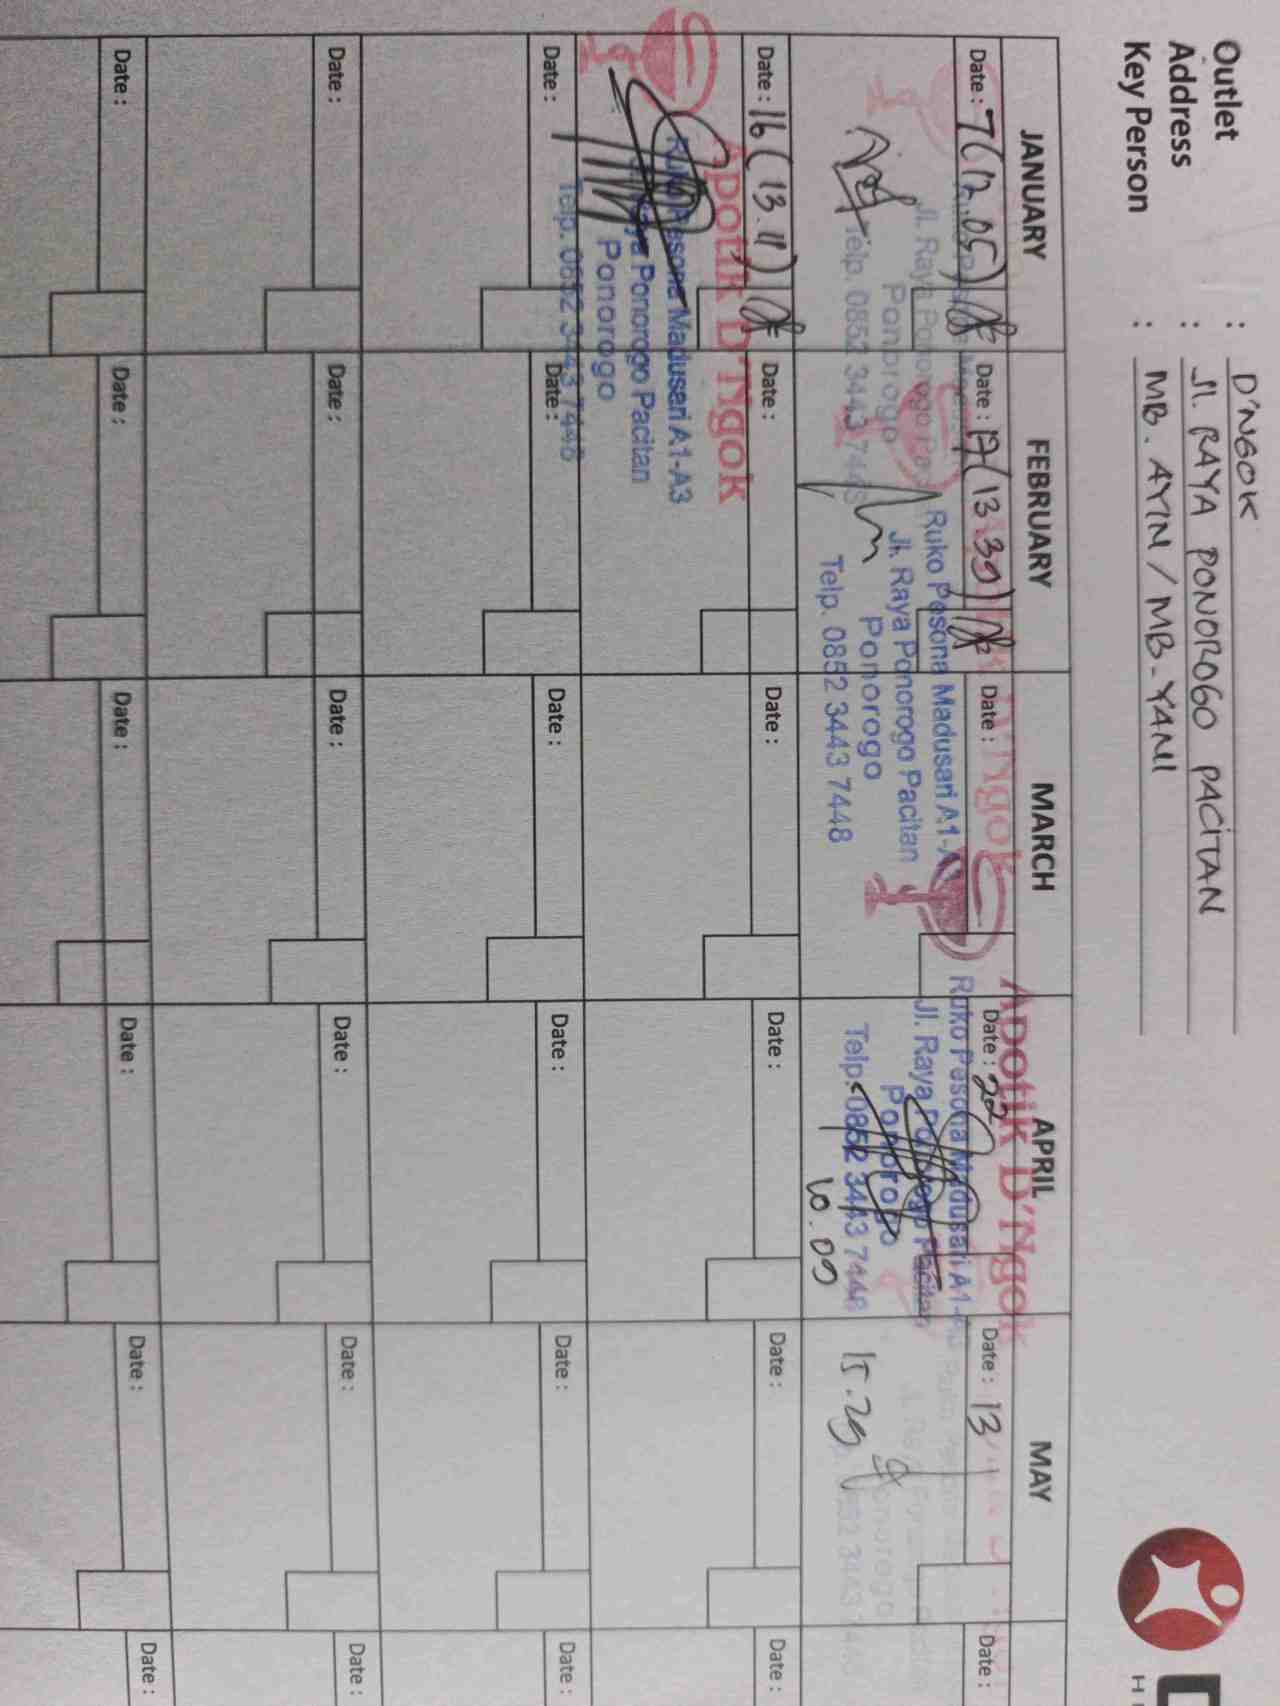 Outlet : D'NGOK
Address : Jl. RAYA PONOROGO PACITAN
Key Person : MB. AYIN / MB. YANI
JANUARY FEBRUARY MARCH APRIL MAY
Date : 7 (12.05) Date : 17 (13.39) Date : Date : 22 Date : 13 Date :
Apotik D'Ngok
Jl. Raya Ponorogo Pacitan
Ponorogo
Telp. 0852 3443 7448
Ruko Pesona Madusari A1-A3
Jl. Raya Ponorogo Pacitan
Ponorogo
Telp. 0852 3443 7448
Apotik D'Ngok
Ruko Pesona Madusari A1-A3
Jl. Raya Ponorogo Pacitan
Ponorogo
Telp. 0852 3443 7448
10.09
15.29
Date : 16 (13.11) Date : Date : Date : Date : Date :
Apotik D'Ngok
Ruko Pesona Madusari A1-A3
Jl. Raya Ponorogo Pacitan
Ponorogo
Telp. 0852 3443 7448
Date : Date : Date : Date : Date : Date :
Date : Date : Date : Date : Date : Date :
Date : Date : Date : Date : Date : Date :